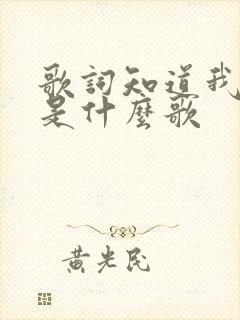 歌詞知道我
是什麼歌
黃光民